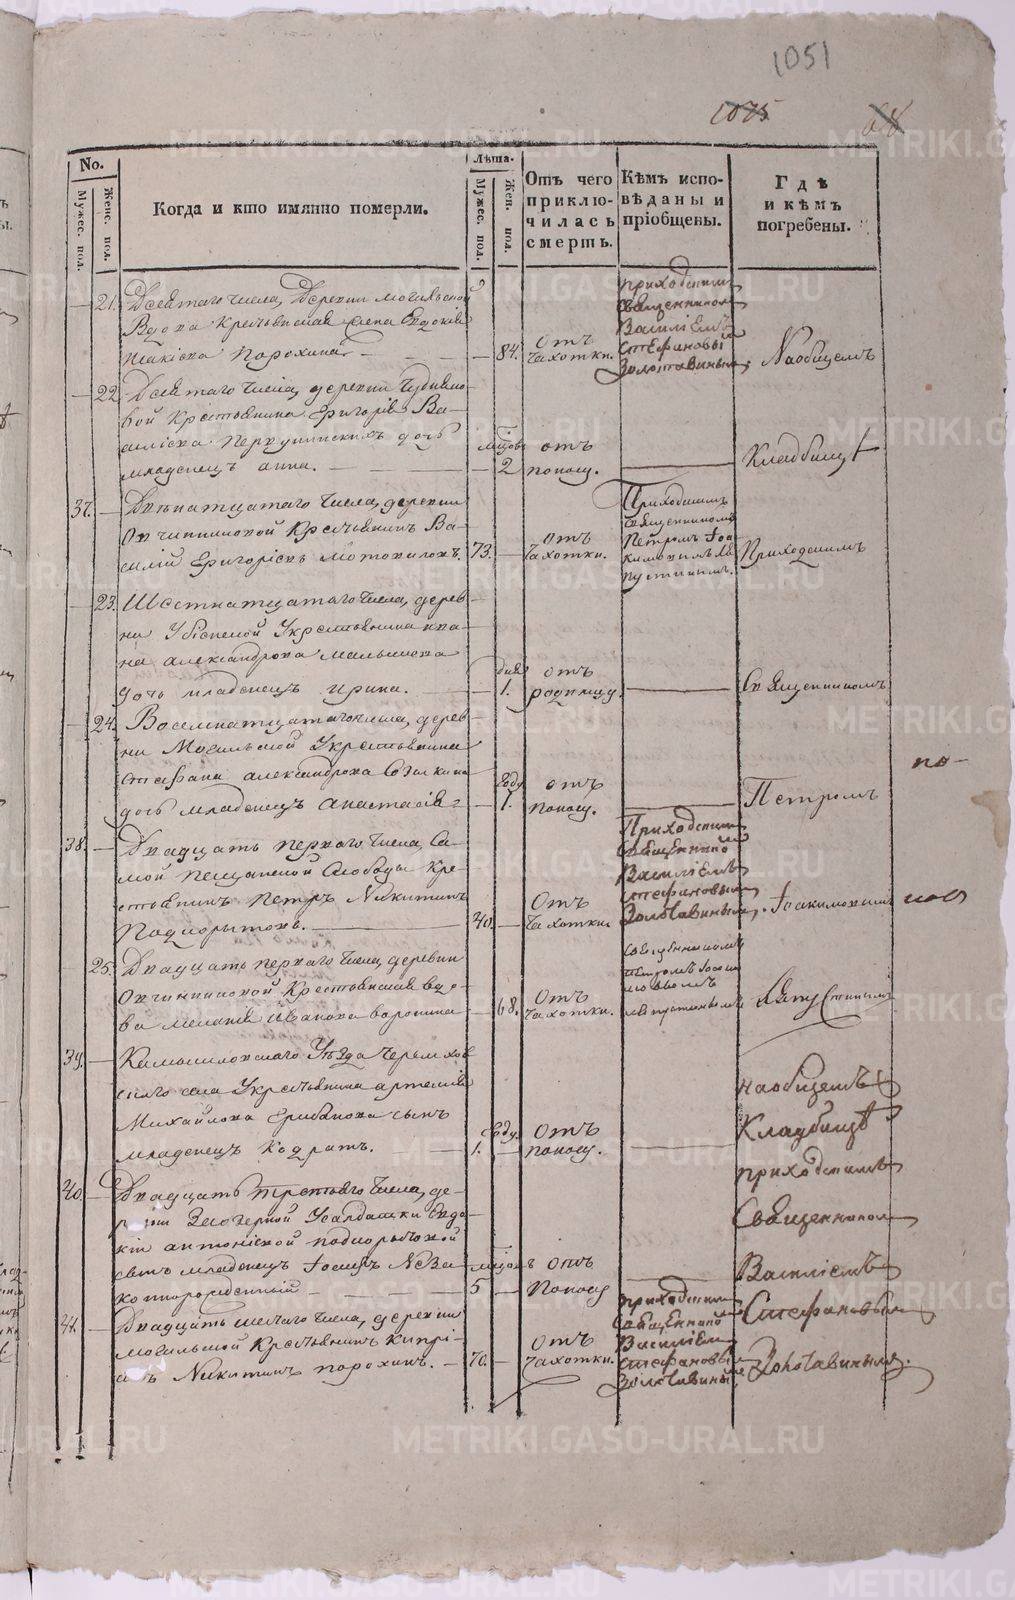 1051
1075 68
No.
Мужес. пол.
Женс. пол.
Когда и кто имянно померли.
Лѣта.
Мужес. пол.
Жен. пол.
Отъ чего приклю-
чилась
смерть.
Кѣмъ испо-
вѣданы и
пріобщены.
Гдѣ
и кѣмъ
погребены.
21. Девятаго числа, деревни могильской
Вдова Крестьянская жена Евдокия
Порохина 84. отъ чахотки.
приходскимъ
священникомъ
Василіемъ
Стефановымъ
Золотавинымъ.
На общемъ
22. Девятаго числа, деревни
вой Крестьянина Григорія Ва-
дочь
младенецъ анна. 2 отъ поносу.
Кладбищѣ
37. Двѣнатцатаго числа, деревни
Овчинниковой Крестьянинъ Ва-
силій Григорьевъ Мотовиловъ. 73. отъ чахотки.
Приходскимъ
священникомъ
Петромъ Іоа-
кимовымъ
Приходскимъ
23. Шестнатцатаго числа, дерев-
ни Убіенной у крестьянина ива-
на александрова малышева
дочь младенецъ ирина. дня 1. отъ родимцу.
Священникомъ
24. Восемнатцатаго числа, дерев-
ни Могильской у крестьянина
стефана александрова
дочь младенецъ анастасія году 1. отъ поносу.
Петромъ
по-
38. Двадцать перваго числа, са-
мой Песчанской Слободы Кре-
стьянинъ Петръ Никитинъ
Подкорытовъ. 40. Отъ чахотки.
Приходскимъ
Священникомъ
Василіемъ
стефановымъ
Золотавинымъ.
Іоакимовымъ
25. Двадцать перваго числа, деревни
Овчинниковой Крестьянская вдо-
ва меланія Иванова воронина 68. отъ чахотки.
священникомъ
петромъ Іоаки-
мовымъ
39. Камышловскаго Уѣзда
скаго села у крестьянина артемія
Михайлова Грибанова сынъ
младенецъ Кодратъ. году. 1. отъ поносу.
на общемъ
Кладбищѣ
40. Двадцать третьяго числа, де-
ревни у солдатки Евдо-
кіи антоніевой подкорытовой
сынъ младенецъ Іосифъ Неза-
коннорожденный 5 отъ поносу
приходскимъ
Священником
Василіемъ
41. Двадцать шестаго числа, деревни
могильской Крестьянинъ Кипрі-
анъ Никитинъ порохинъ. 70. отъ чахотки.
приходским
Священнико
Василіем
стефановы
Золотавины
Стефановым
Золотавиным.
METRIKI.GASO-URAL.RU